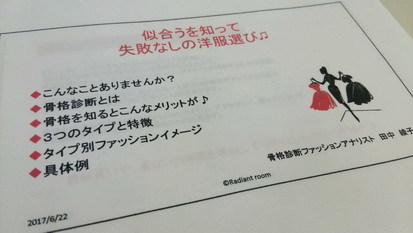 似合うを知って
失敗なしの洋服選び♫
◆こんなことありませんか？
◆骨格診断とは
◆骨格を知るとこんなメリットが♪
◆３つのタイプと特徴
◆タイプ別ファッションイメージ
◆具体例
骨格診断ファッションアナリスト 田中 綾子
©Radiant room
2017/6/22